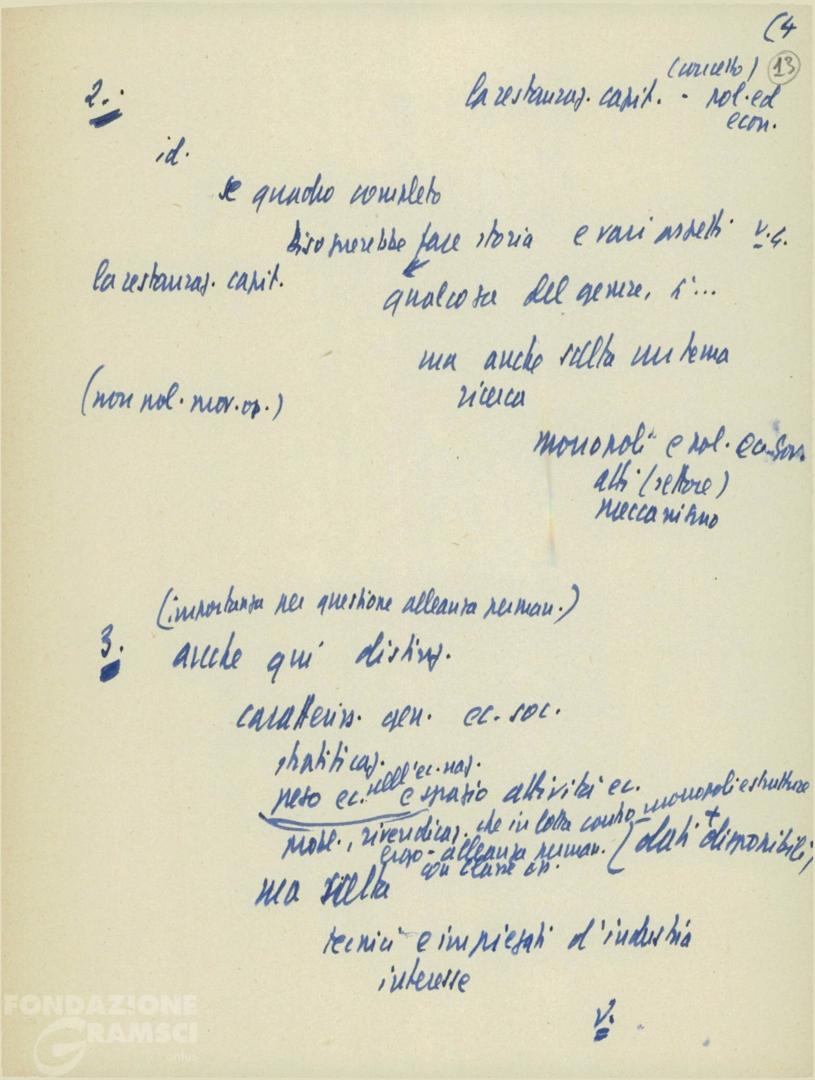 (4
(concetto) 13
2. la restauraz. capit. - pol. ed
econ.
id.
se quadro completo
bisognerebbe fare storia e vari aspetti v. s.
la restauraz. capit.
qualcosa del genere, sì...
ma anche scelta un tema
ricerca
(non pol. mov. op.)
monopoli e pol. ec. Gov.
altri (settore)
meccanismo
(importanza per questione alleanza perman.)
3. anche qui distinz.
caratteriz. gen. ec. soc.
stratificaz.
peso ec. nell'ec. naz. e spazio attività ec.
probl., rivendicaz. che in lotta contro monopoli e strutture
ergo - alleanza perman. (dati + disponibili)
con classe op.
ma scelta
tecnici e impiegati d'industria
interesse
v.
FONDAZIONE
GRAMSCI
onlus